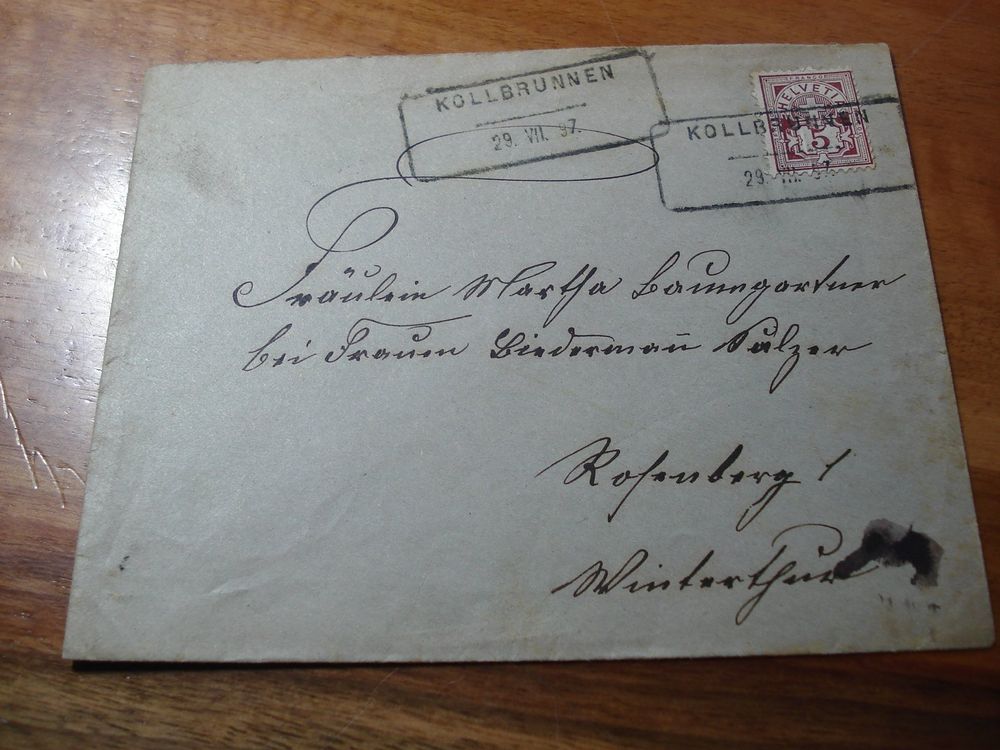 KOLLBRUNNEN
29. VII. 97.
FRANCO
HELVETIA
5
KOLLBRUNNEN
29. VII. 97.
Fräulein Martha Baumgartner
bei Frauen Biedermann Sulzer
Rosenberg /
Winterthur